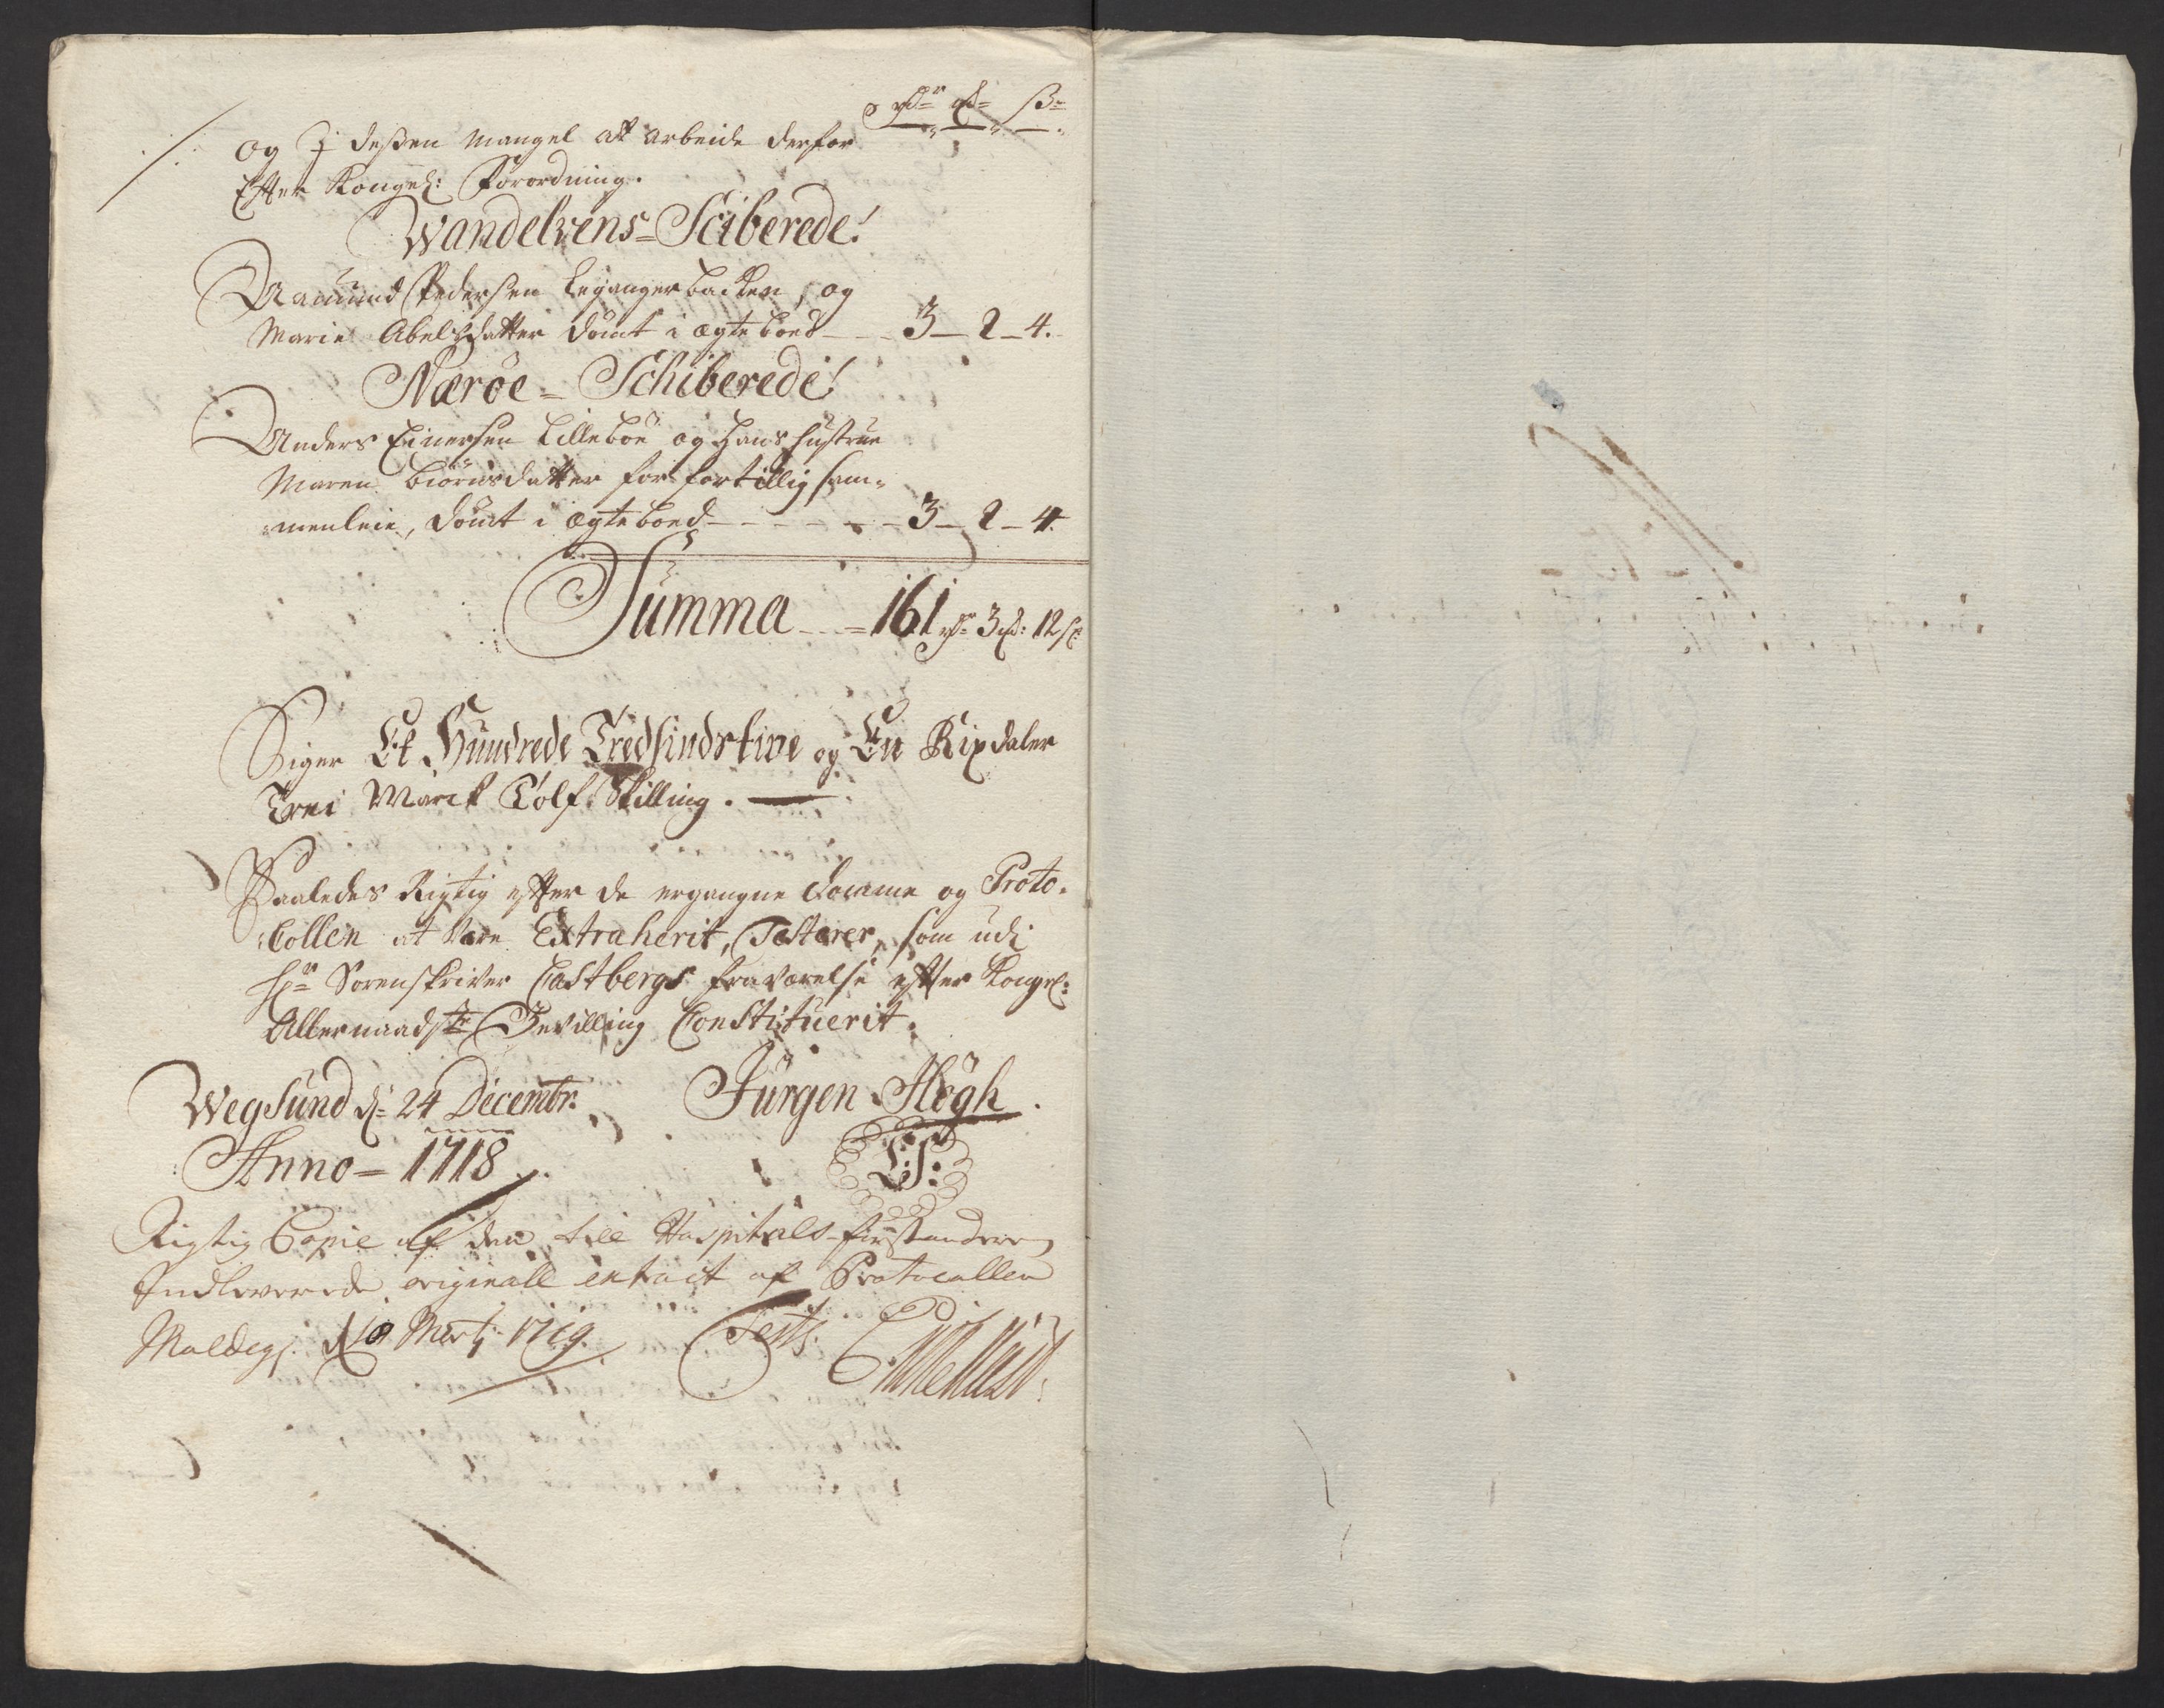 rdr mk ß
og J deßen Mangel att arbeide derfor
Efter Kongel: Forordning.
Wandelvens-Sciberede!
Aamund Pedersen Legangerbacken, og
Marie Abelsdatter domt i ægte boed 3 – 2 – 4.
Nærøe = Schiberede!
Anders Einersen Lilleboe og hans hustrue
Maren Biörnsdatter for fortillig sam-
menleie, domt i ægte boed 3 – 2 – 4.
Summa 161 rdr 3 mk: 12 ß
Siger Et Hundrede Tredsindstive og En Rixdaler
Trei Marck Tolf Skilling.
Saaledes Rigtig efter de ergangne Domme og Proto-
Collen at være Extraherit, Testerer, som udi
Hr Sorenskriver Castbergs fraværelse efter Kongel:
Allernaadste Bevilling Constituerit.
Wegsund d: 24 Decembr:
Jürgen Högh.
Anno = 1718
L:S:
Rigtig Copie af den till Hospitals-forstanderen
Indleverede originall extract af Protocollen
Molde d 10 Marti 1719.
Test: